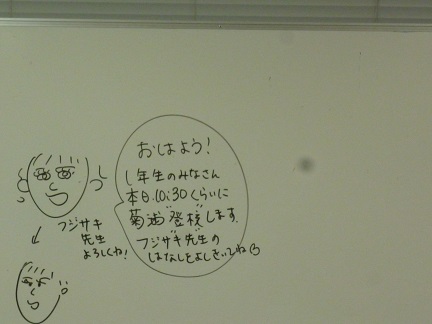 おはよう!
1年生のみなさん
本日、10:30くらいに
菊池登校します。
フジサキ先生の
はなしをよくきいてね
フジサキ
先生
よろしくね!